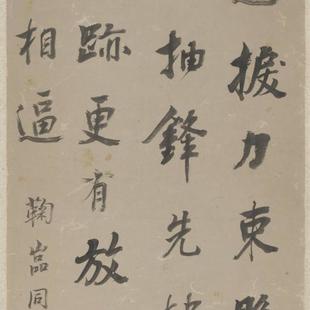 捩力束
抽鋒先
跡更有放
相逼
鞠嵒同